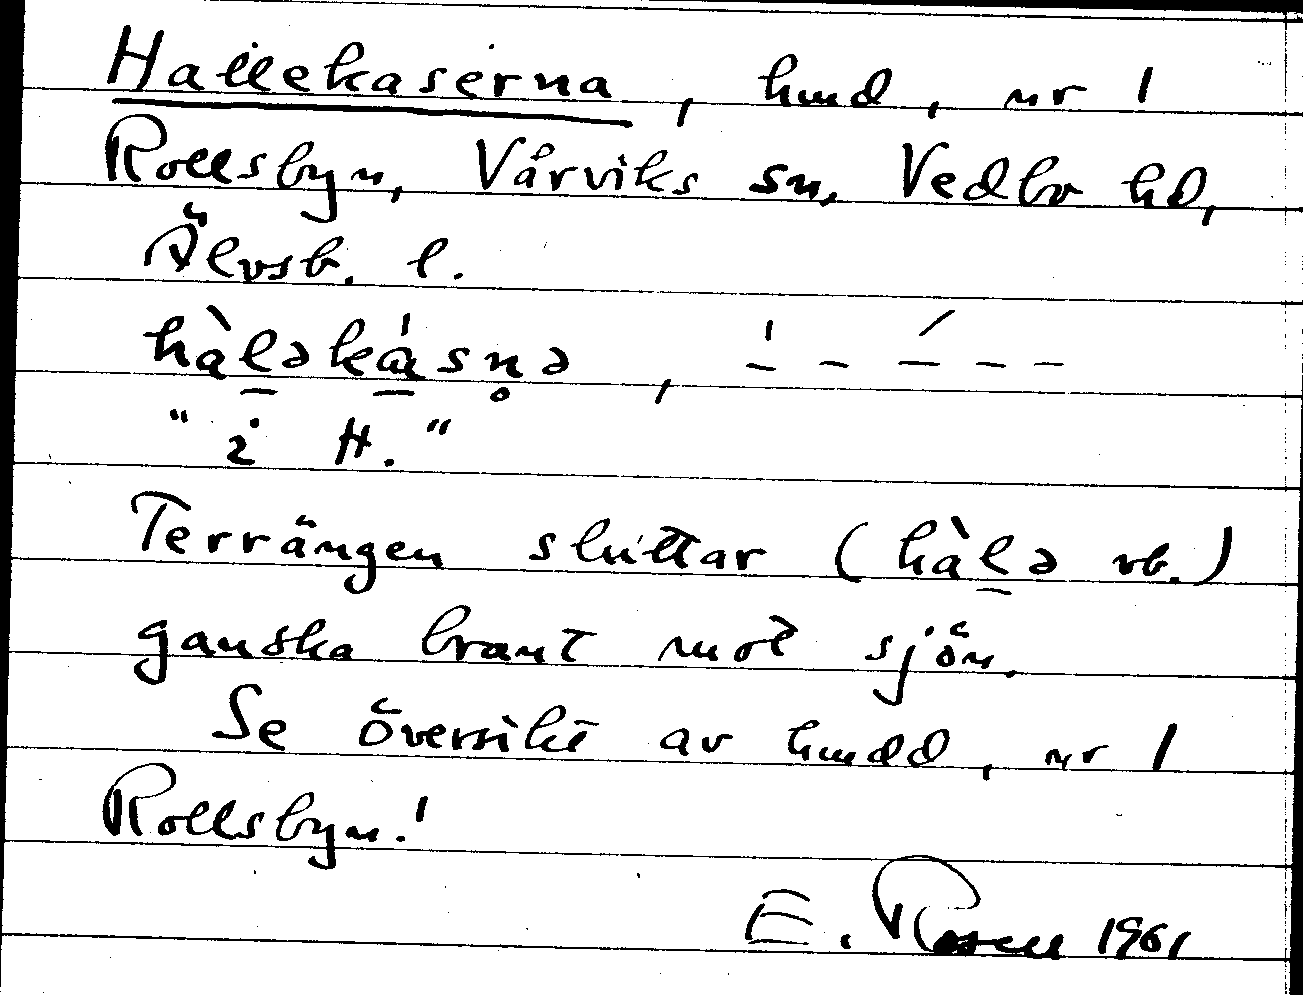 Hallekaserna, hmd, nr 1
Rollsbyn, Vårviks sn, Vedbo hd,
Älvsb. l.
hàl̠əká̠sn̥ə, –́ – –́ – –
"i H."
Terrängen sluttar (hàl̠ə vb.)
ganska brant mot sjön.
Se översikt av hmdd, nr 1
Rollsbyn!
E. Rosell 1961